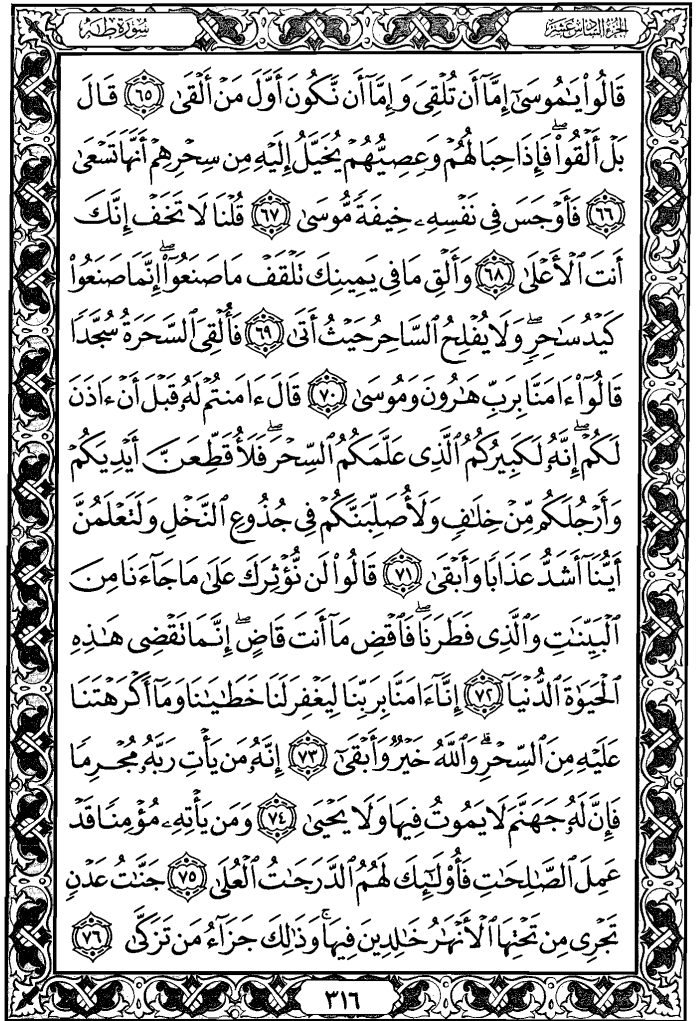 الجزء السادس عشر
سورة طه
قَالُوا۟ يَـٰمُوسَىٰٓ إِمَّآ أَن تُلْقِىَ وَإِمَّآ أَن نَّكُونَ أَوَّلَ مَنْ أَلْقَىٰ ٦٥ قَالَ
بَلْ أَلْقُوا۟ۖ فَإِذَا حِبَالُهُمْ وَعِصِيُّهُمْ يُخَيَّلُ إِلَيْهِ مِن سِحْرِهِمْ أَنَّهَا تَسْعَىٰ
٦٦ فَأَوْجَسَ فِى نَفْسِهِۦ خِيفَةً مُّوسَىٰ ٦٧ قُلْنَا لَا تَخَفْ إِنَّكَ
أَنتَ ٱلْأَعْلَىٰ ٦٨ وَأَلْقِ مَا فِى يَمِينِكَ تَلْقَفْ مَا صَنَعُوٓا۟ۖ إِنَّمَا صَنَعُوا۟
كَيْدُ سَـٰحِرٍۖ وَلَا يُفْلِحُ ٱلسَّاحِرُ حَيْثُ أَتَىٰ ٦٩ فَأُلْقِىَ ٱلسَّحَرَةُ سُجَّدًا
قَالُوٓا۟ ءَامَنَّا بِرَبِّ هَـٰرُونَ وَمُوسَىٰ ٧٠ قَالَ ءَامَنتُمْ لَهُۥ قَبْلَ أَنْ ءَاذَنَ
لَكُمْۖ إِنَّهُۥ لَكَبِيرُكُمُ ٱلَّذِى عَلَّمَكُمُ ٱلسِّحْرَۖ فَلَأُقَطِّعَنَّ أَيْدِيَكُمْ
وَأَرْجُلَكُم مِّنْ خِلَـٰفٍ وَلَأُصَلِّبَنَّكُمْ فِى جُذُوعِ ٱلنَّخْلِ وَلَتَعْلَمُنَّ
أَيُّنَآ أَشَدُّ عَذَابًا وَأَبْقَىٰ ٧١ قَالُوا۟ لَن نُّؤْثِرَكَ عَلَىٰ مَا جَآءَنَا مِنَ
ٱلْبَيِّنَـٰتِ وَٱلَّذِى فَطَرَنَاۖ فَٱقْضِ مَآ أَنتَ قَاضٍۖ إِنَّمَا تَقْضِى هَـٰذِهِ
ٱلْحَيَوٰةَ ٱلدُّنْيَآ ٧٢ إِنَّآ ءَامَنَّا بِرَبِّنَا لِيَغْفِرَ لَنَا خَطَـٰيَـٰنَا وَمَآ أَكْرَهْتَنَا
عَلَيْهِ مِنَ ٱلسِّحْرِۗ وَٱللَّهُ خَيْرٌ وَأَبْقَىٰٓ ٧٣ إِنَّهُۥ مَن يَأْتِ رَبَّهُۥ مُجْرِمًا
فَإِنَّ لَهُۥ جَهَنَّمَ لَا يَمُوتُ فِيهَا وَلَا يَحْيَىٰ ٧٤ وَمَن يَأْتِهِۦ مُؤْمِنًا قَدْ
عَمِلَ ٱلصَّـٰلِحَـٰتِ فَأُو۟لَـٰٓئِكَ لَهُمُ ٱلدَّرَجَـٰتُ ٱلْعُلَىٰ ٧٥ جَنَّـٰتُ عَدْنٍ
تَجْرِى مِن تَحْتِهَا ٱلْأَنْهَـٰرُ خَـٰلِدِينَ فِيهَاۚ وَذَٰلِكَ جَزَآءُ مَن تَزَكَّىٰ ٧٦
٣١٦